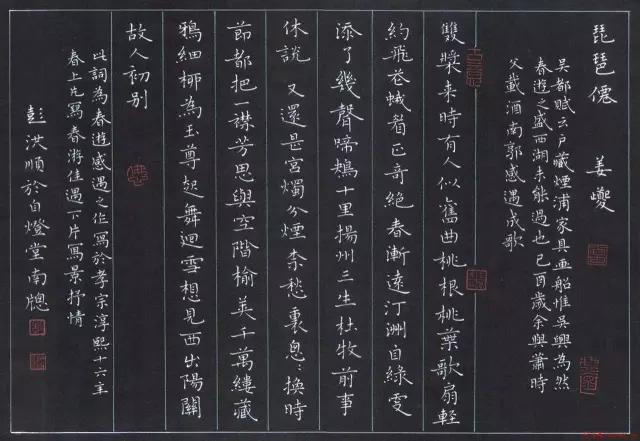 琵琶僊 姜夔
吳都賦云户藏煙浦家具画船惟吳興為然
春遊之盛西湖未能過也己酉歲余與蕭時
父載酒南郭感遇成歌
雙槳来時有人似舊曲桃根桃葉歌扇輕
約飛花蛾眉正奇絕春漸遠汀洲自綠更
添了幾聲啼鴂十里揚州三生杜牧前事
休說 又還是宮燭分煙柰愁裏怱〻換時
節都把一襟芳思與空階榆莢千萬縷藏
鴉細柳為玉尊起舞迴雪想見西出陽關
故人初別
此詞為春遊感遇之作寫於孝宗淳熙十六年
春上片寫春游佳遇下片寫景抒情
彭洪順於自燈堂南牕